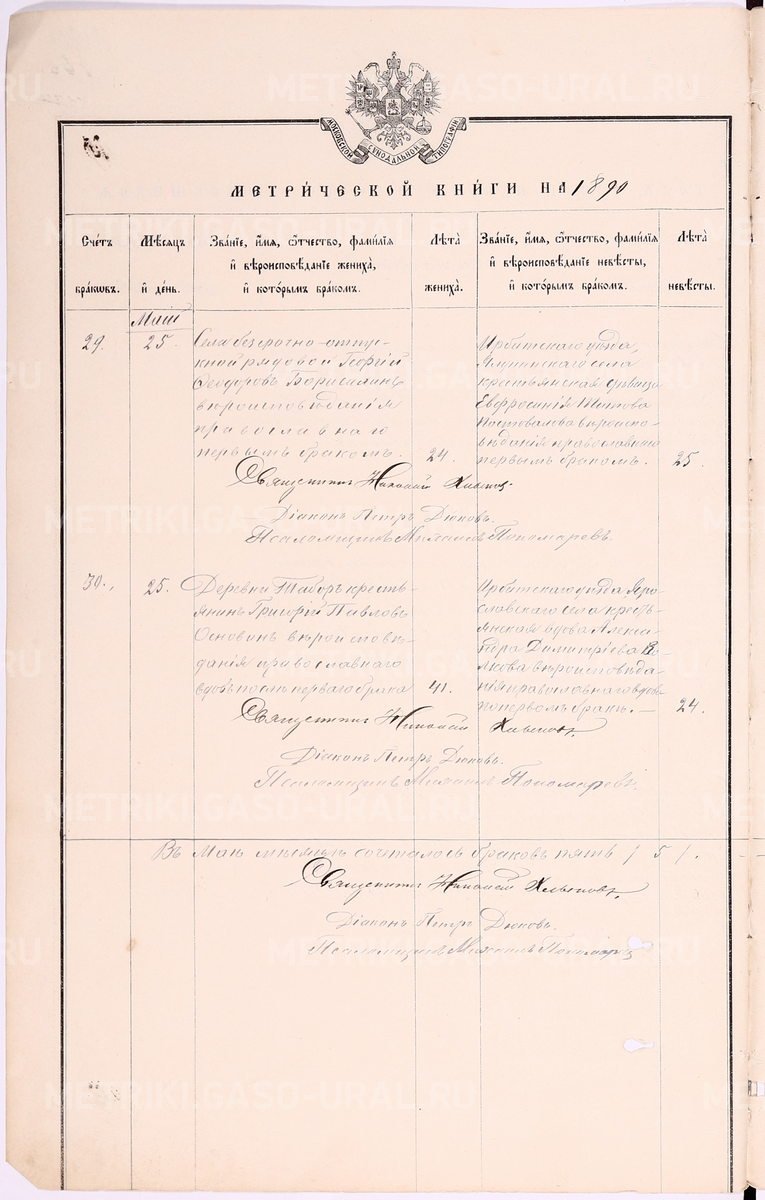 МОСКОВСКОЙ СѴНОДАЛЬНОЙ ТИПОГРАФІИ
МЕТРИ́ЧЕСКОЙ КНИ́ГИ НА 1890
Сче́тъ бра́кѡвъ.
Мѣ́сѧцъ и҆ де́нь.
Зва́нїе, и҆́мѧ, ѻ҆́тчество, фами́лїѧ и҆ вѣроисповѣ́данїе жениха̀, и҆ кото́рымъ бра́комъ.
Лѣ̑та жениха̀.
Зва́нїе, и҆́мѧ, ѻ҆́тчество, фами́лїѧ и҆ вѣроисповѣ́данїе невѣ́сты, и҆ кото́рымъ бра́комъ.
Лѣ̑та невѣ́сты.
Май
29.
25.
Села безсрочно-отпу-
кной рядовой Георгій
Ѳеодоровъ
вѣроисповѣданія
православнаго
первымъ бракомъ.
24.
Ирбитскаго уѣзда,
села
крестьянская дѣвица
Евфросинія Титова
Постовалова вѣроиспо-
вѣданія православнаго
первымъ бракомъ.
25.
Священникъ Николай
Діаконъ Петръ Дюковъ.
Псаломщикъ Михаилъ Пономаревъ.
30.
25.
Деревни Таборъ кресть-
янинъ Григорій Павловъ
вѣроисповѣ-
данія православнаго
вдовъ послѣ перваго брака
41.
Ирбитскаго уѣзда Яро-
славскаго села кресть-
янская вдова Алекса-
ндра Димитріева
вѣроисповѣда-
нія православнаго вдова
по первомъ бракѣ.
24.
Священникъ Николай
Діаконъ Петръ Дюковъ.
Псаломщикъ Михаилъ Пономаревъ.
Въ Маѣ мѣсяцѣ сочеталось браковъ пять / 5 /.
Священникъ Николай
Діаконъ Петръ Дюковъ.
Псаломщикъ Михаилъ Пономаревъ
METRIKI.GASO-URAL.RU